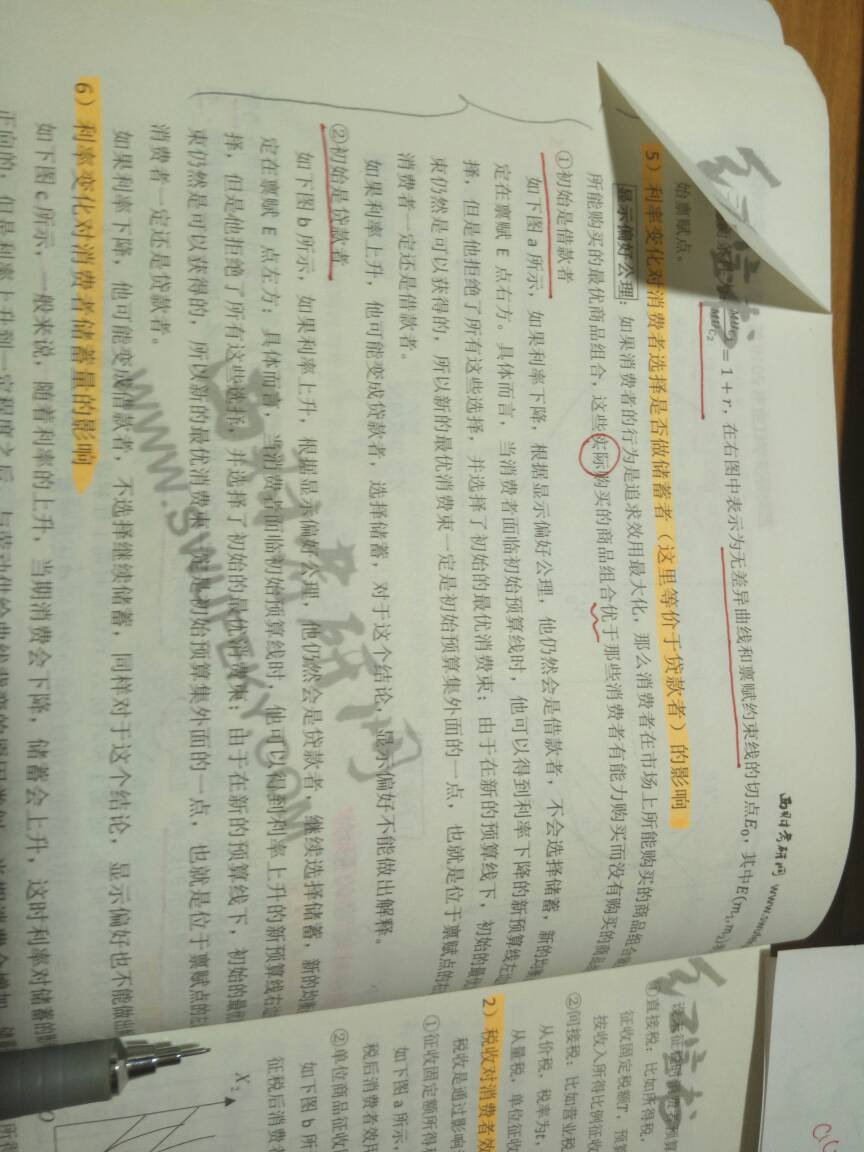 西财考研网 www.swufe
始禀赋点。
= 1 + r，在右图中表示为无差异曲线和禀赋约束线的切点E₀，其中E(m₁,m₂)
5）利率变化对消费者选择是否做储蓄者（这里等价于贷款者）的影响
显示偏好公理：如果消费者的行为是追求效用最大化，那么消费者在市场上所能购买的商品组合
所能购买的最优商品组合，这些实际购买的商品组合优于那些消费者有能力购买而没有购买的商品
①初始是借款者
如下图 a 所示，如果利率下降，根据显示偏好公理，他仍然会是借款者，不会选择储蓄，新的均衡
定在禀赋 E 点右方。具体而言，当消费者面临初始预算线时，他可以得到利率下降的新预算线左
择，但是他拒绝了所有这些选择，并选择了初始的最优消费束；由于在新的预算线下，初始的最优
束仍然是可以获得的，所以新的最优消费束一定是初始预算集外面的一点，也就是位于禀赋点的右
消费者一定还是借款者。
如果利率上升，他可能变成贷款者，选择储蓄，对于这个结论，显示偏好不能做出解释。
②初始是贷款者
如下图 b 所示，如果利率上升，根据显示偏好公理，他仍然会是贷款者，继续选择储蓄，新的均衡
定在禀赋 E 点左方；具体而言，当消费者面临初始预算线时，他可以得到利率上升的新预算线右
择，但是他拒绝了所有这些选择，并选择了初始的最优消费束；由于在新的预算线下，初始的最优
束仍然是可以获得的，所以新的最优消费束一定是初始预算集外面的一点，也就是位于禀赋点的左
消费者一定还是贷款者。
如果利率下降，他可能变成借款者，不选择继续储蓄，同样对于这个结论，显示偏好也不能做出
6）利率变化对消费者储蓄量的影响
如下图 c 所示，一般来说，随着利率的上升，当期消费会下降，储蓄会上升，这时利率对储蓄的影
正向的，但是利率上升到一定程度之后，与劳动供给曲线
西财考研网
WWW.SWUFEKY.COM
①直接税：比如所得税，
征收固定税额T，预算
按收入所得比例征收
②间接税：比如营业税
从价税，税率为t，
从量税，单位征收
2）税收对消费者效
税收是通过影响
①征收固定额所得税
如下图 a 所示，
税后消费者效用
②单位商品征收
如下图 b 所
征税后消费者
X₂